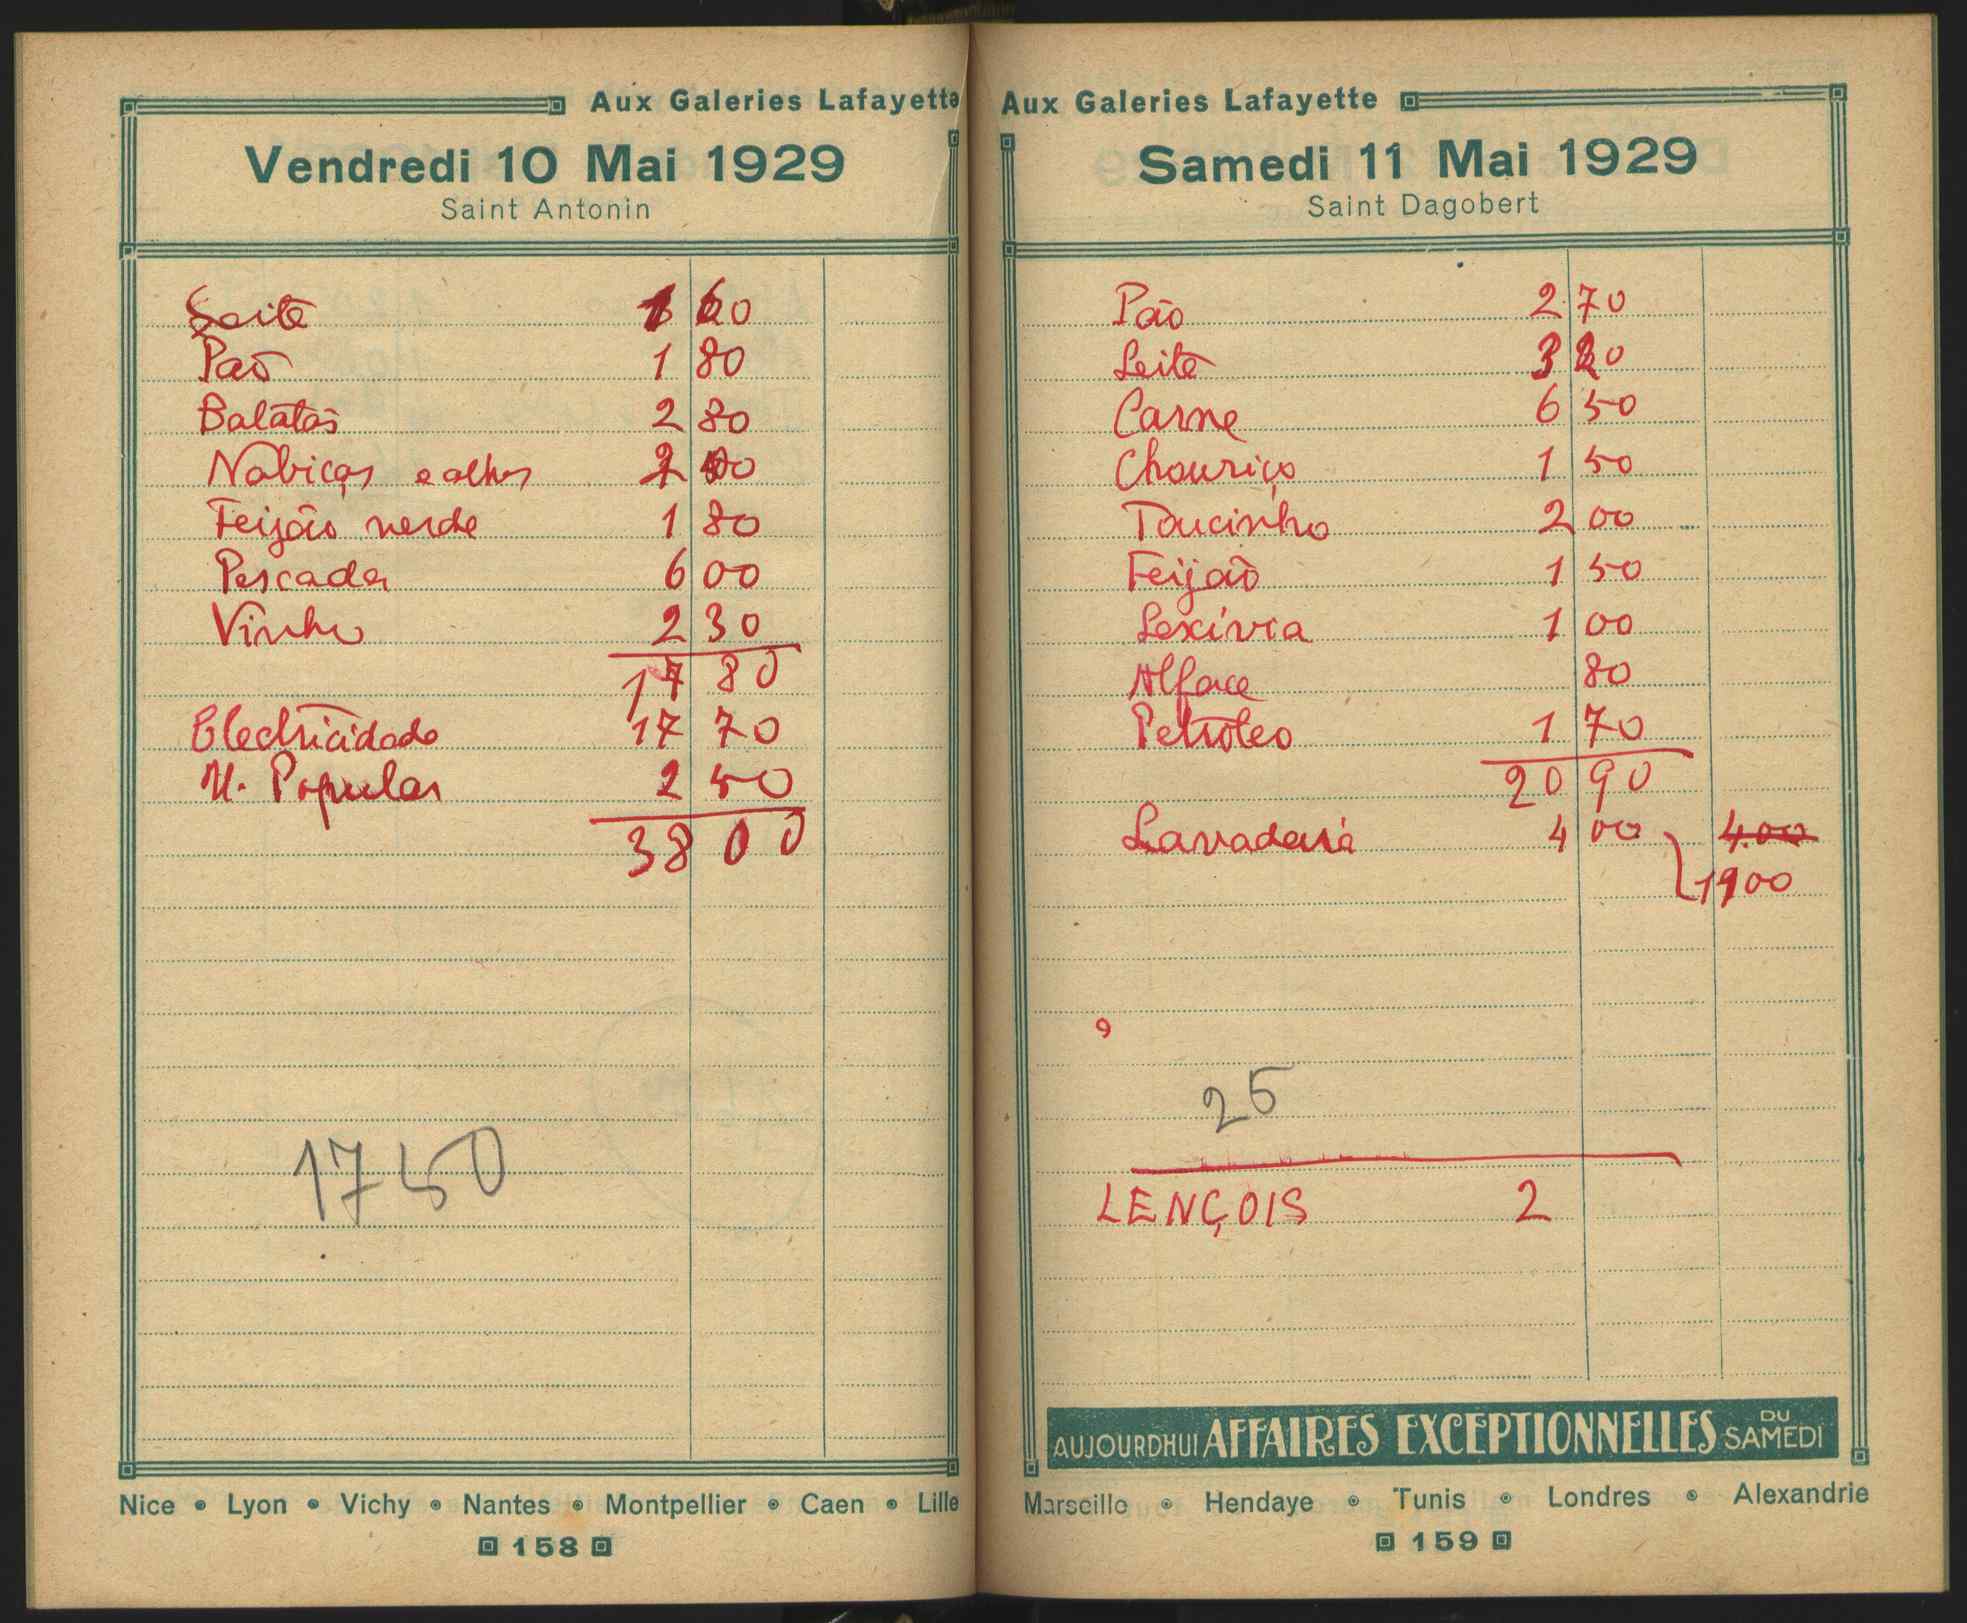 Aux Galeries Lafayette
Vendredi 10 Mai 1929
Saint Antonin
Leite 1 60
Pão 1 80
Batatas 2 80
Nabiças e alhos
Feijão verde 1 80
Pescada 6 00
Vinho 2 30
17 80
Electricidade 17 70
U. Popular 2 50
38 00
1750
Nice • Lyon • Vichy • Nantes • Montpellier • Caen • Lille
158
Aux Galeries Lafayette
Samedi 11 Mai 1929
Saint Dagobert
Pão 2 70
Leite 3 20
Carne 6 50
Chouriço 1 50
Toucinho 2 00
Feijão 1 50
Lexívia 1 00
Alface 80
Petróleo 1 70
20 90
Lavadeira 4 00 4.00
1900
25
LENÇOIS 2
AUJOURDHUI AFFAIRES EXCEPTIONNELLES DU SAMEDI
Marseille • Hendaye • Tunis • Londres • Alexandrie
159